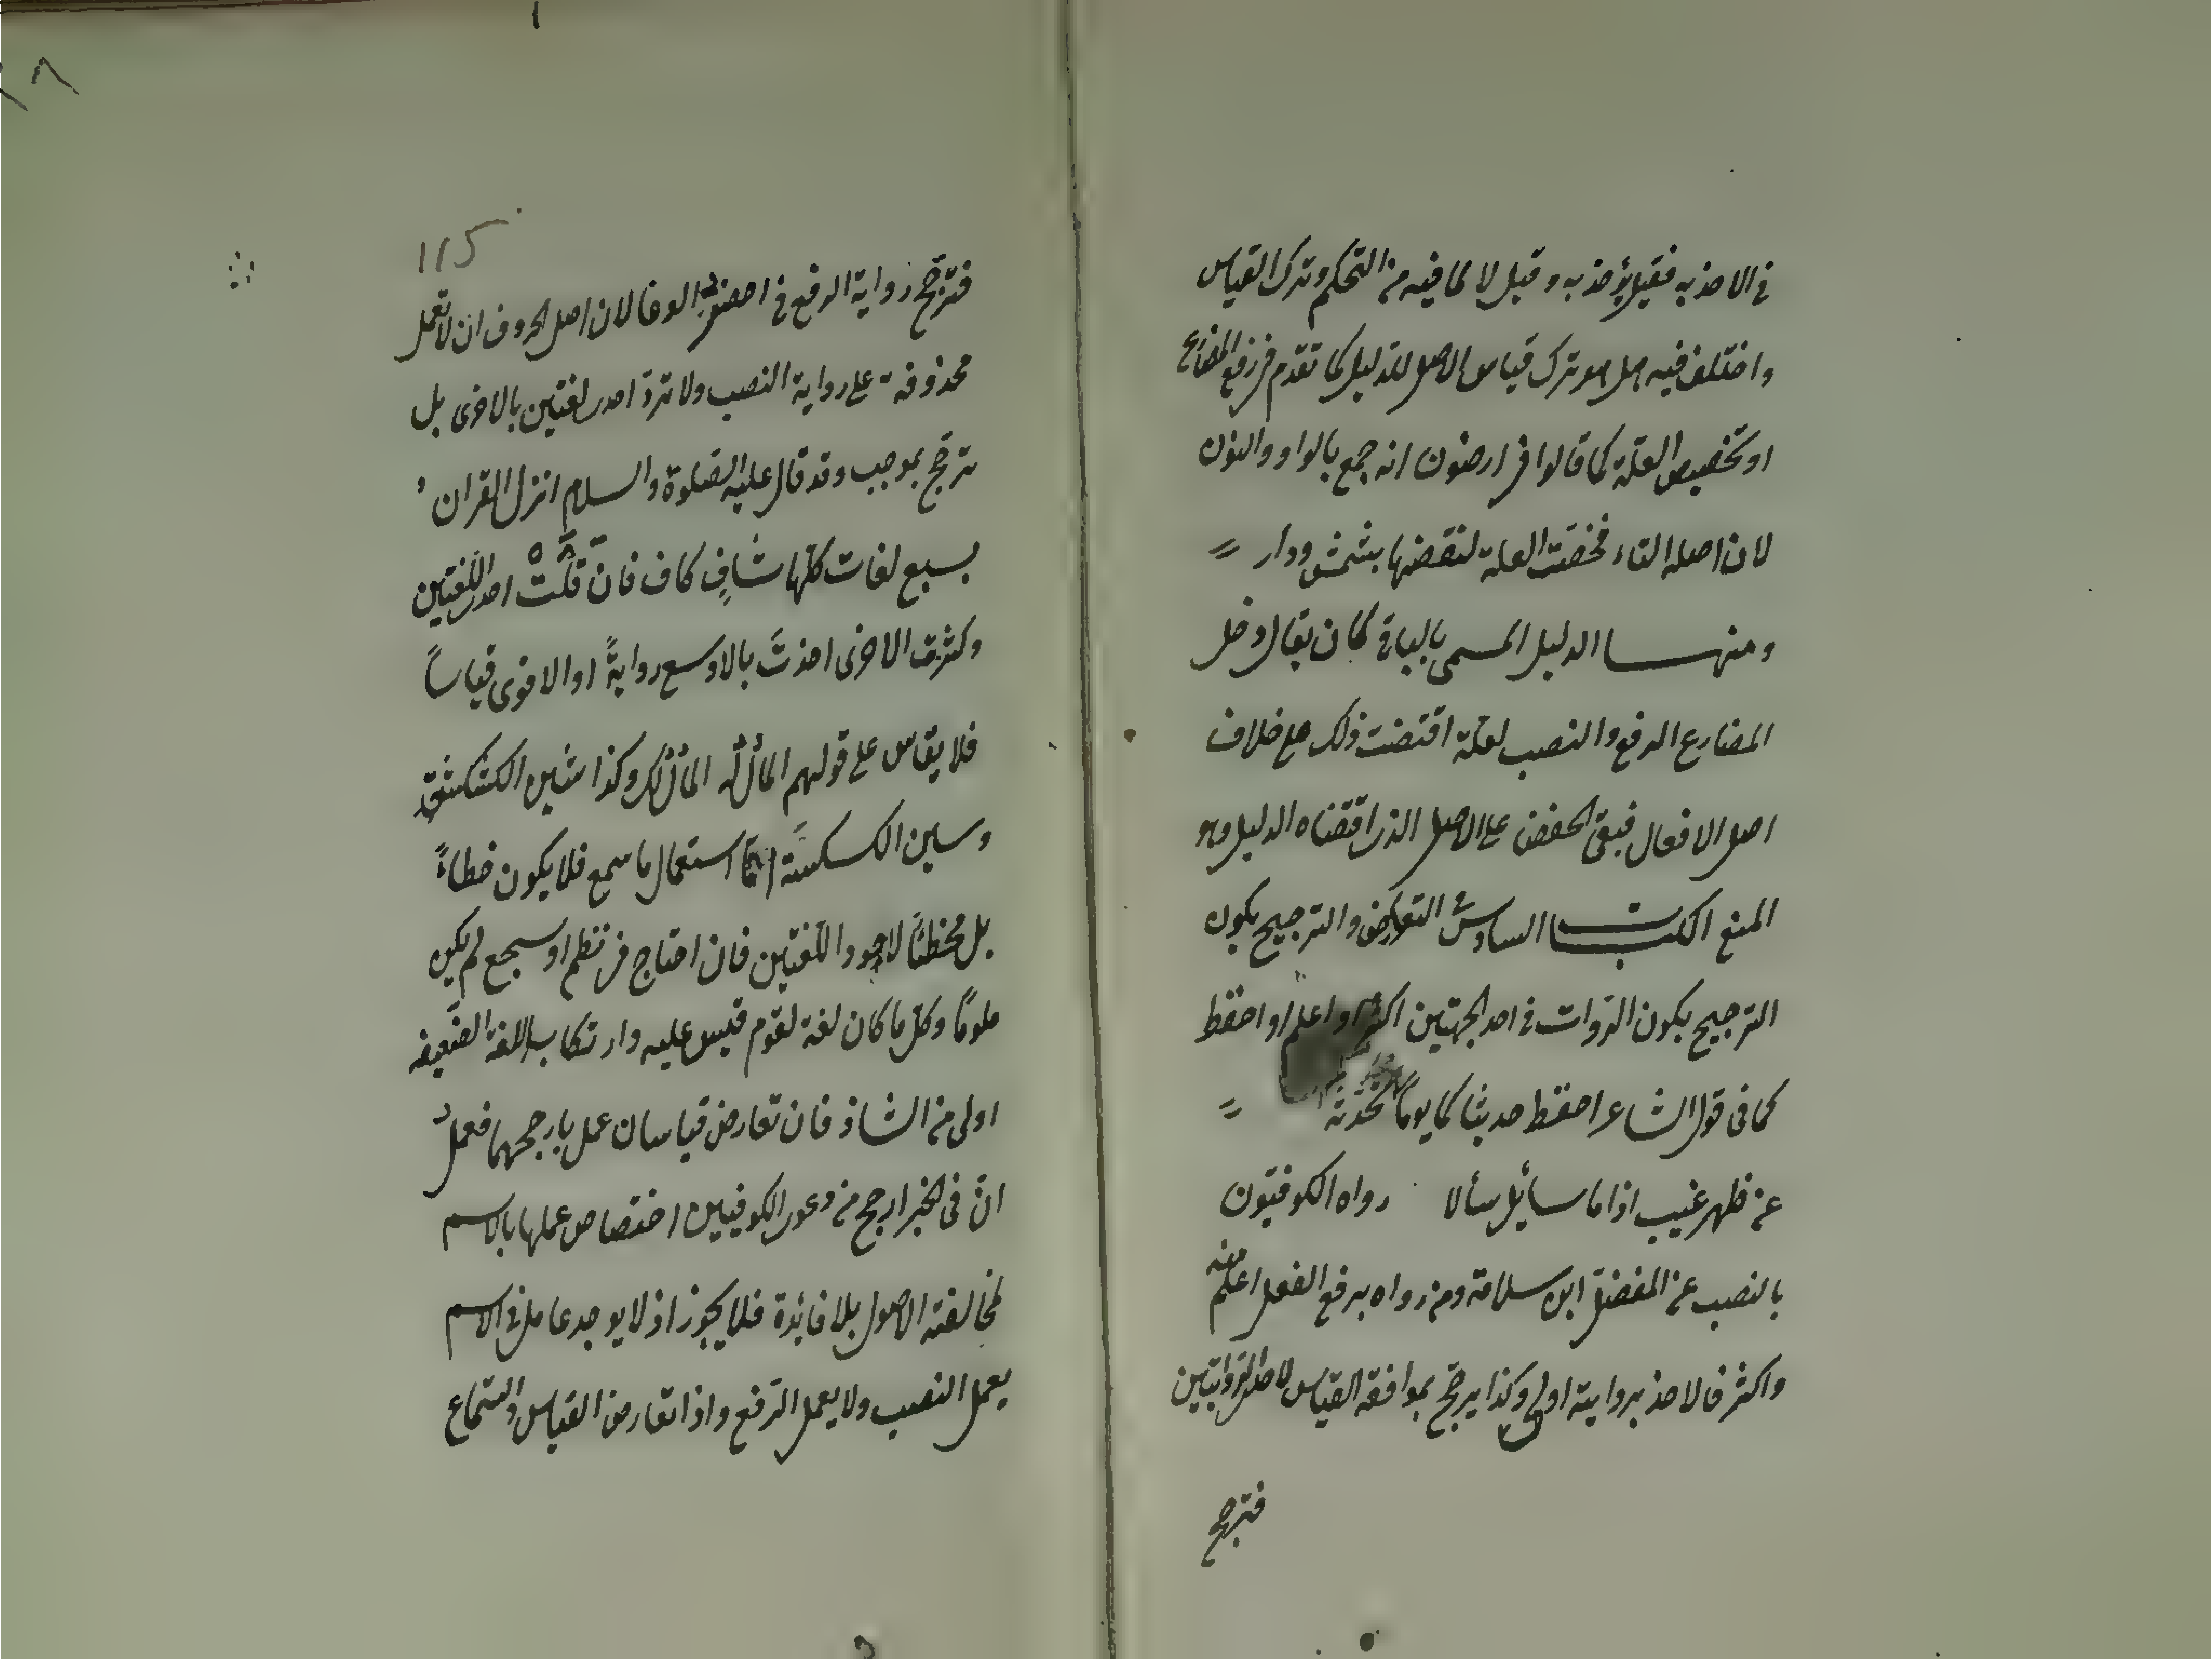 في الاخذ به فقيل يؤخذ به وقيل لا لما فيه من التحكم وترك القياس
واختلف فيه هل هو ترك قياس الاصل للدليل كما تقدم في رفع المضارع
او تخصيص العلة كما قالوا في ارضون انه جمع بالواو والنون
لان اصله التاء فخصت العلة لنقضها بشمس ودار
ومنها الدليل المسمى بالباقي كان يقال دخل
المضارع الرفع والنصب لعلة اقتضت ذلك على خلاف
اصل الافعال فبقى الخفض على الاصل الذى اقتضاه الدليل وهو
المنع الكتاب السادس التعارض والترجيح يكون
الترجيح بكون الروات في احد الجهتين اكثر او اعلم او احفظ
كما فى قول الشاعر احفظ حديثا كما يوما تحدثه
عن ظهر غيب اذا ما سائل سألا رواه الكوفيون
بالنصب عن المفضل ابن سلامة ومن رواه برفع الفعل اعلم منه
واكثر فالاخذ بروايته اولى وكذا يرجح بموافقة القياس لاحد الروايتين
فترجح
115
فترجح رواية الرفع في احضر الوغا لان اصل الحروف ان لا تعمل
محذوفة على رواية النصب ولا ترد احدى لغتين بالاخرى بل
ترجح بموجب وقد قال عليه الصلوة والسلام انزل القران
بسبع لغات كلها شاف كاف فان قلت احدى اللغتين
وكثرت الاخرى اخذت بالاوسع رواية او الاقوى قياسا
فلا يقاس على قولهم المال له المال لك وكذا شين الكشكشة
وسين الكسكسة اما استعمال ما سمع فلا يكون خطاء
بل مخطئا لاجود اللغتين فان احتاج في نظم او سجع لم يكن
ملوما وكل ما كان لغة لقوم قيس عليه وارتكاب اللغة الضعيفه
اولى من الشاذ فان تعارض قياسان عمل بارجحهما فعمل
ان فى الخبر ارجح من دعوى الكوفيين اختصاص عملها بالاسم
لمخالفته الاصول بلا فائدة فلا يجوز اذ لا يوجد عامل في الاسم
يعمل النصب ولا يعمل الرفع واذا تعارض القياس والسماع